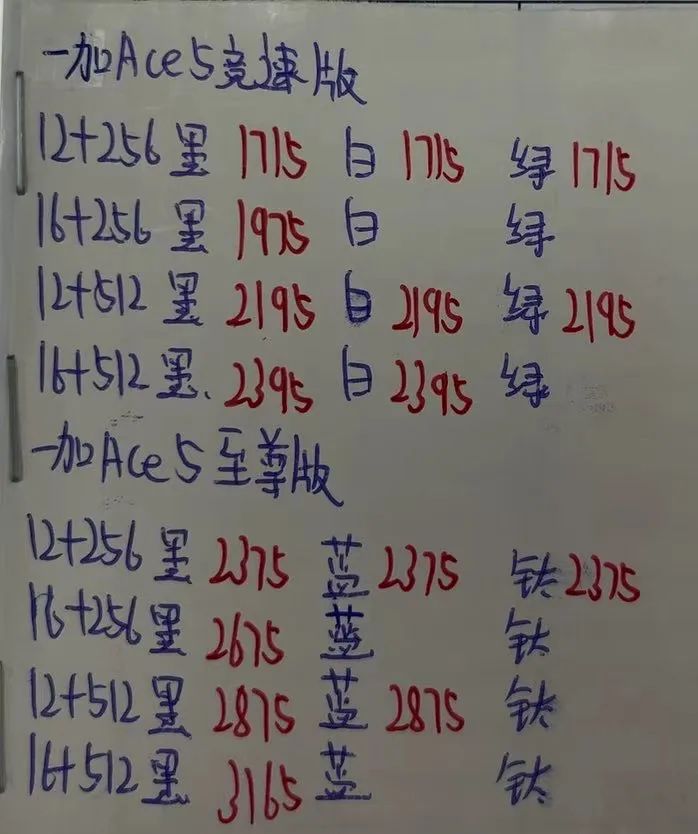 一加Ace5竞速版
12+256 黑 1715 白 1715 绿 1715
16+256 黑 1975 白 绿
12+512 黑 2195 白 2195 绿 2195
16+512 黑 2395 白 2395 绿
一加Ace5至尊版
12+256 黑 2375 蓝 2375 钛 2375
16+256 黑 2675 蓝 钛
12+512 黑 2875 蓝 2875 钛
16+512 黑 3165 蓝 钛